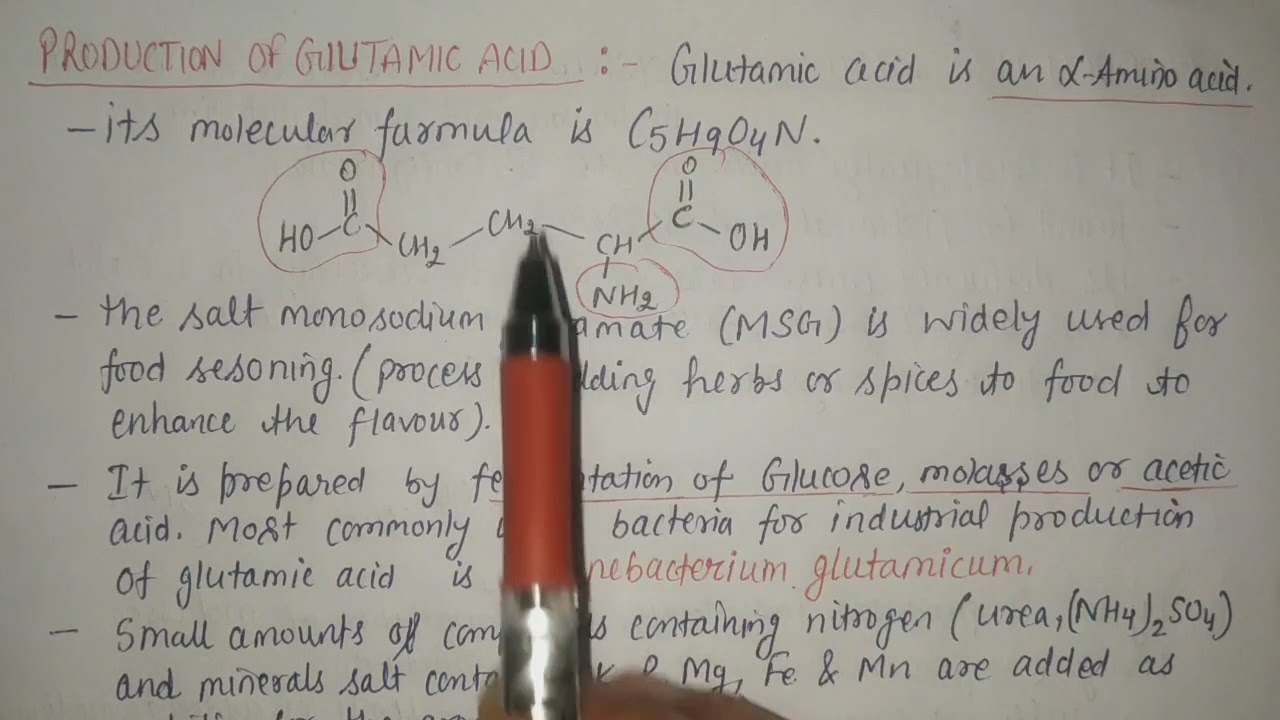 PRODUCTION OF GlUTAMIC ACID :- Glutamic acid is an α-Amino acid.
- its molecular farmula is C5H9O4N.
O O
HO C CH2 CH2 CH C OH
NH2
- the salt monosodium amate (MSG) is widely used for
food sesoning. (process lding herbs or spices to food to
enhance the flavour).
- It is prepared by fe ntation of Glucose, molasses or acetic
acid. Most commonly bacteria for industrial production
of glutamic acid is nebacterium glutamicum.
- Small amounts of com s containing nitrogen (urea, (NH4)2SO4)
and minerals salt conta K, P, Mg, Fe & Mn are added as